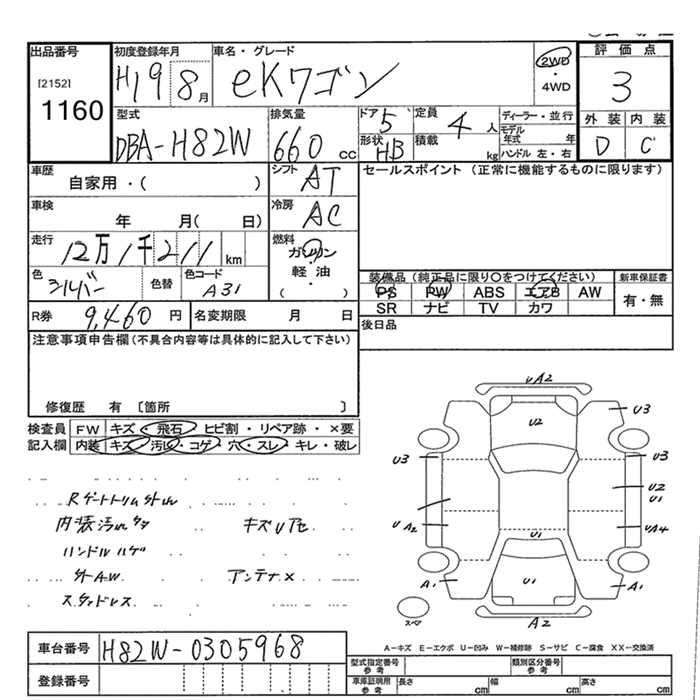 出品番号 初度登録年月 車名・グレード 評価点
[2152] H19 8月 eKワゴン 2WD・4WD 3
1160
型式 排気量 ドア 5 定員 4人 ディーラー・並行 外装 内装
DBA-H82W 660cc 形状 HB 積載 kg モデル年式 年 D C
ハンドル 左・右
車歴 シフト AT セールスポイント (正常に機能するものに限ります)
自家用・( )
車検 冷房 AC
年 月( 日)
走行 12万1千211km 燃料 ガソリン・軽油・( )
色 シルバー 色替 色コード A31
装備品 (純正品に限り○をつけてください) 新車保証書
PS PW ABS エアB AW 有・無
SR ナビ TV カワ
R券 9,460円 名変期限 月 日 後日品
注意事項申告欄(不具合内容等は具体的に記入して下さい)
修復歴 有 〔箇所 〕
検査員 FW キズ・飛石・ヒビ割・リペア跡・×要
記入欄 内装 キズ・汚レ・コゲ・穴・スレ・キレ・破レ
Rゲートトリム外れ
内装汚れキズ キズUアセ
ハンドルハゲ
外AW アンテナ×
スタッドレス
UA2
U2
U3 U3
U3
U2
U1
UA2 UA4
U1
A1 U1 A1
スペア A2
A-キズ E-エクボ U-凹み W-補修跡 S-サビ C-腐食 XX-交換済
車台番号 H82W-0305968
登録番号
型式指定番号 参考 類別区分番号 参考
車庫証明用 参考 長さ cm 幅 cm 高さ cm